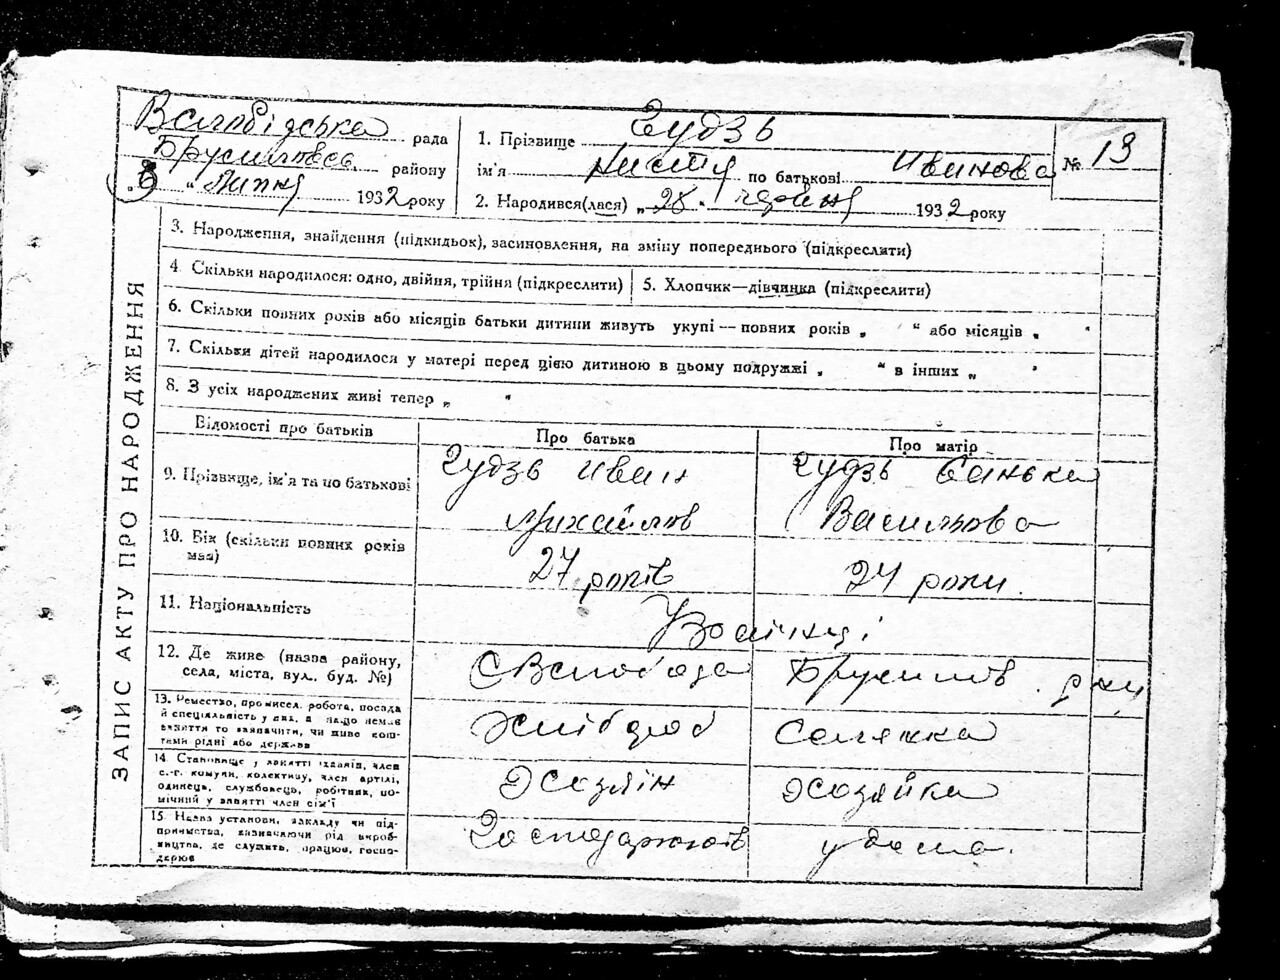 рада
Брусиловськ. району
"6" Липня 1932 року
1. Прізвище Гудзь
ім'я по батькові Иванова
2. Народився(лася) „28" червня 1932 року
№ 13
ЗАПИС АКТУ ПРО НАРОДЖЕННЯ
3. Народження, знайдення (підкидьок), засиновлення, на зміну попереднього (підкреслити)
4. Скільки народилося: одно, двійня, трійня (підкреслити)
5. Хлопчик—дівчинка (підкреслити)
6. Скільки повних років або місяців батьки дитини живуть укупі — повних років „ " або місяців „ "
7. Скільки дітей народилося у матері перед цією дитиною в цьому подружжі „ " в інших „ "
8. З усіх народжених живі тепер „ "
Відомості про батьків
Про батька
Про матір
9. Прізвище, ім'я та по батькові
Гудзь Иван
Михайлов
Гудзь Ганька
Васильова
10. Вік (скільки повних років
мав)
27 років
24 роки.
11. Національність
12. Де живе (назва району,
села, міста, вул., буд. №)
Брусилов. р-ну
13. Ремество, промисел, робота, посада
й спеціяльність у них, а якщо немає
заняття то зазначити, чи живе кош-
тами рідні або держави
Хлібороб
Селянка
14. Становище у занятті: хазяїн, член
с.-г. комуни, колективу, член артілі,
одинець, службовець, робітник, по-
мічний у занятті член сім'ї
Хозяїн
Хозяйка
15. Назва установи, закладу чи під-
приємства, визначаючи рід вироб-
ництва, де служить, працює, госпо-
дарює
Господарюють
удома.